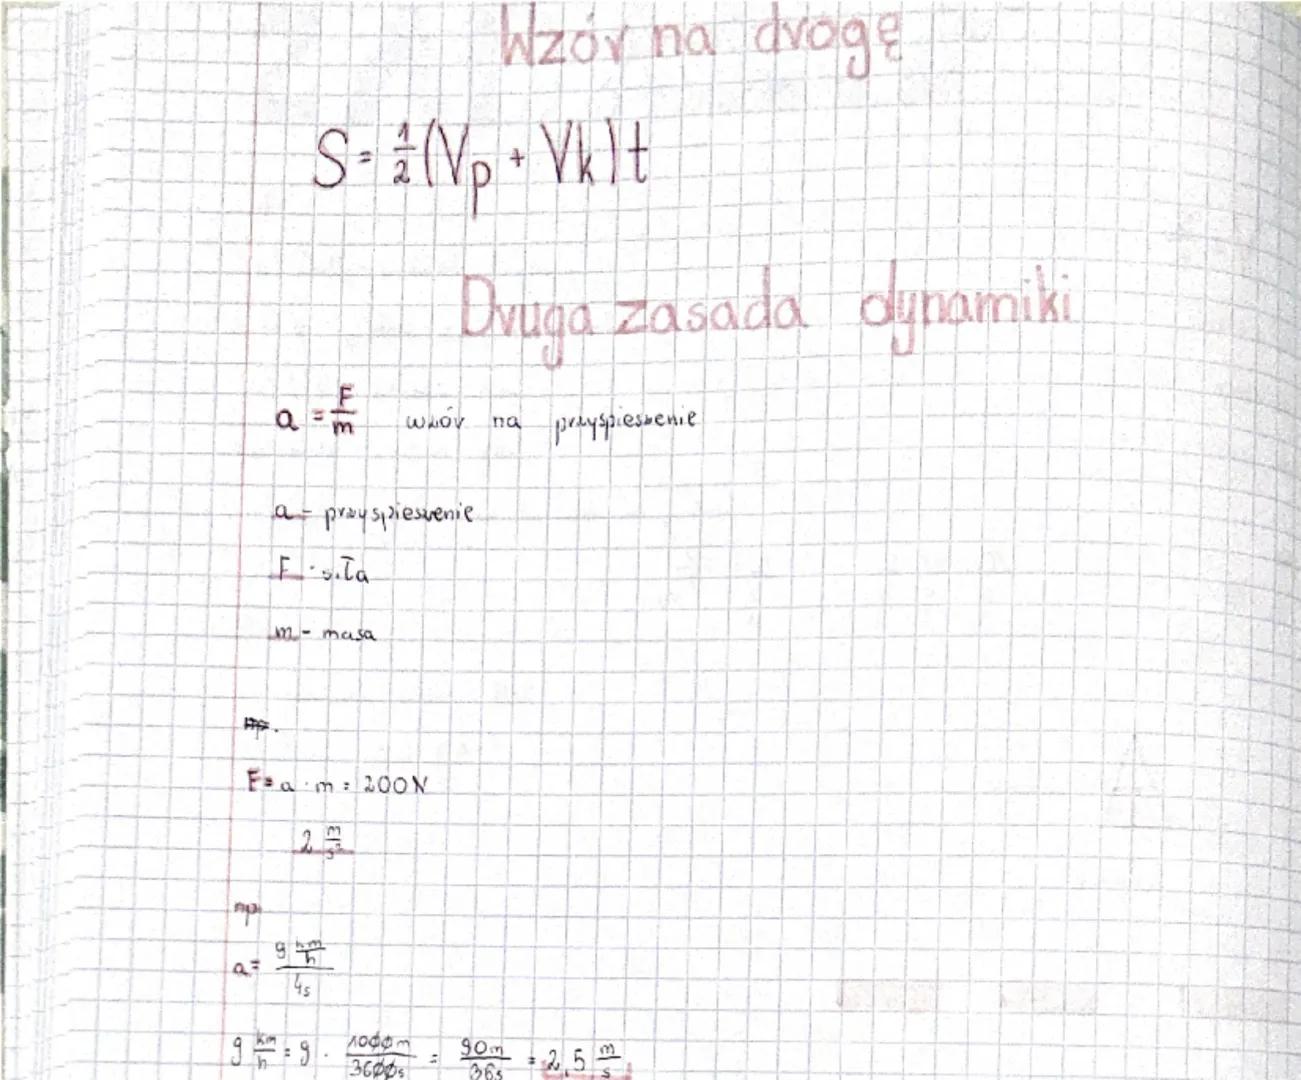 Wzór na drogę
S = 1/2 (Vp + Vk)t
Druga zasada dynamiki
a = F/m wzór na przyspieszenie
a - przyspieszenie
F - siła
m - masa
np.
F = a · m = 200N
2 m/s²
np.
a = 9 km/h / 4s
9 km/h = 9 · 1000m/3600s = 90m/36s = 2,5 m/s